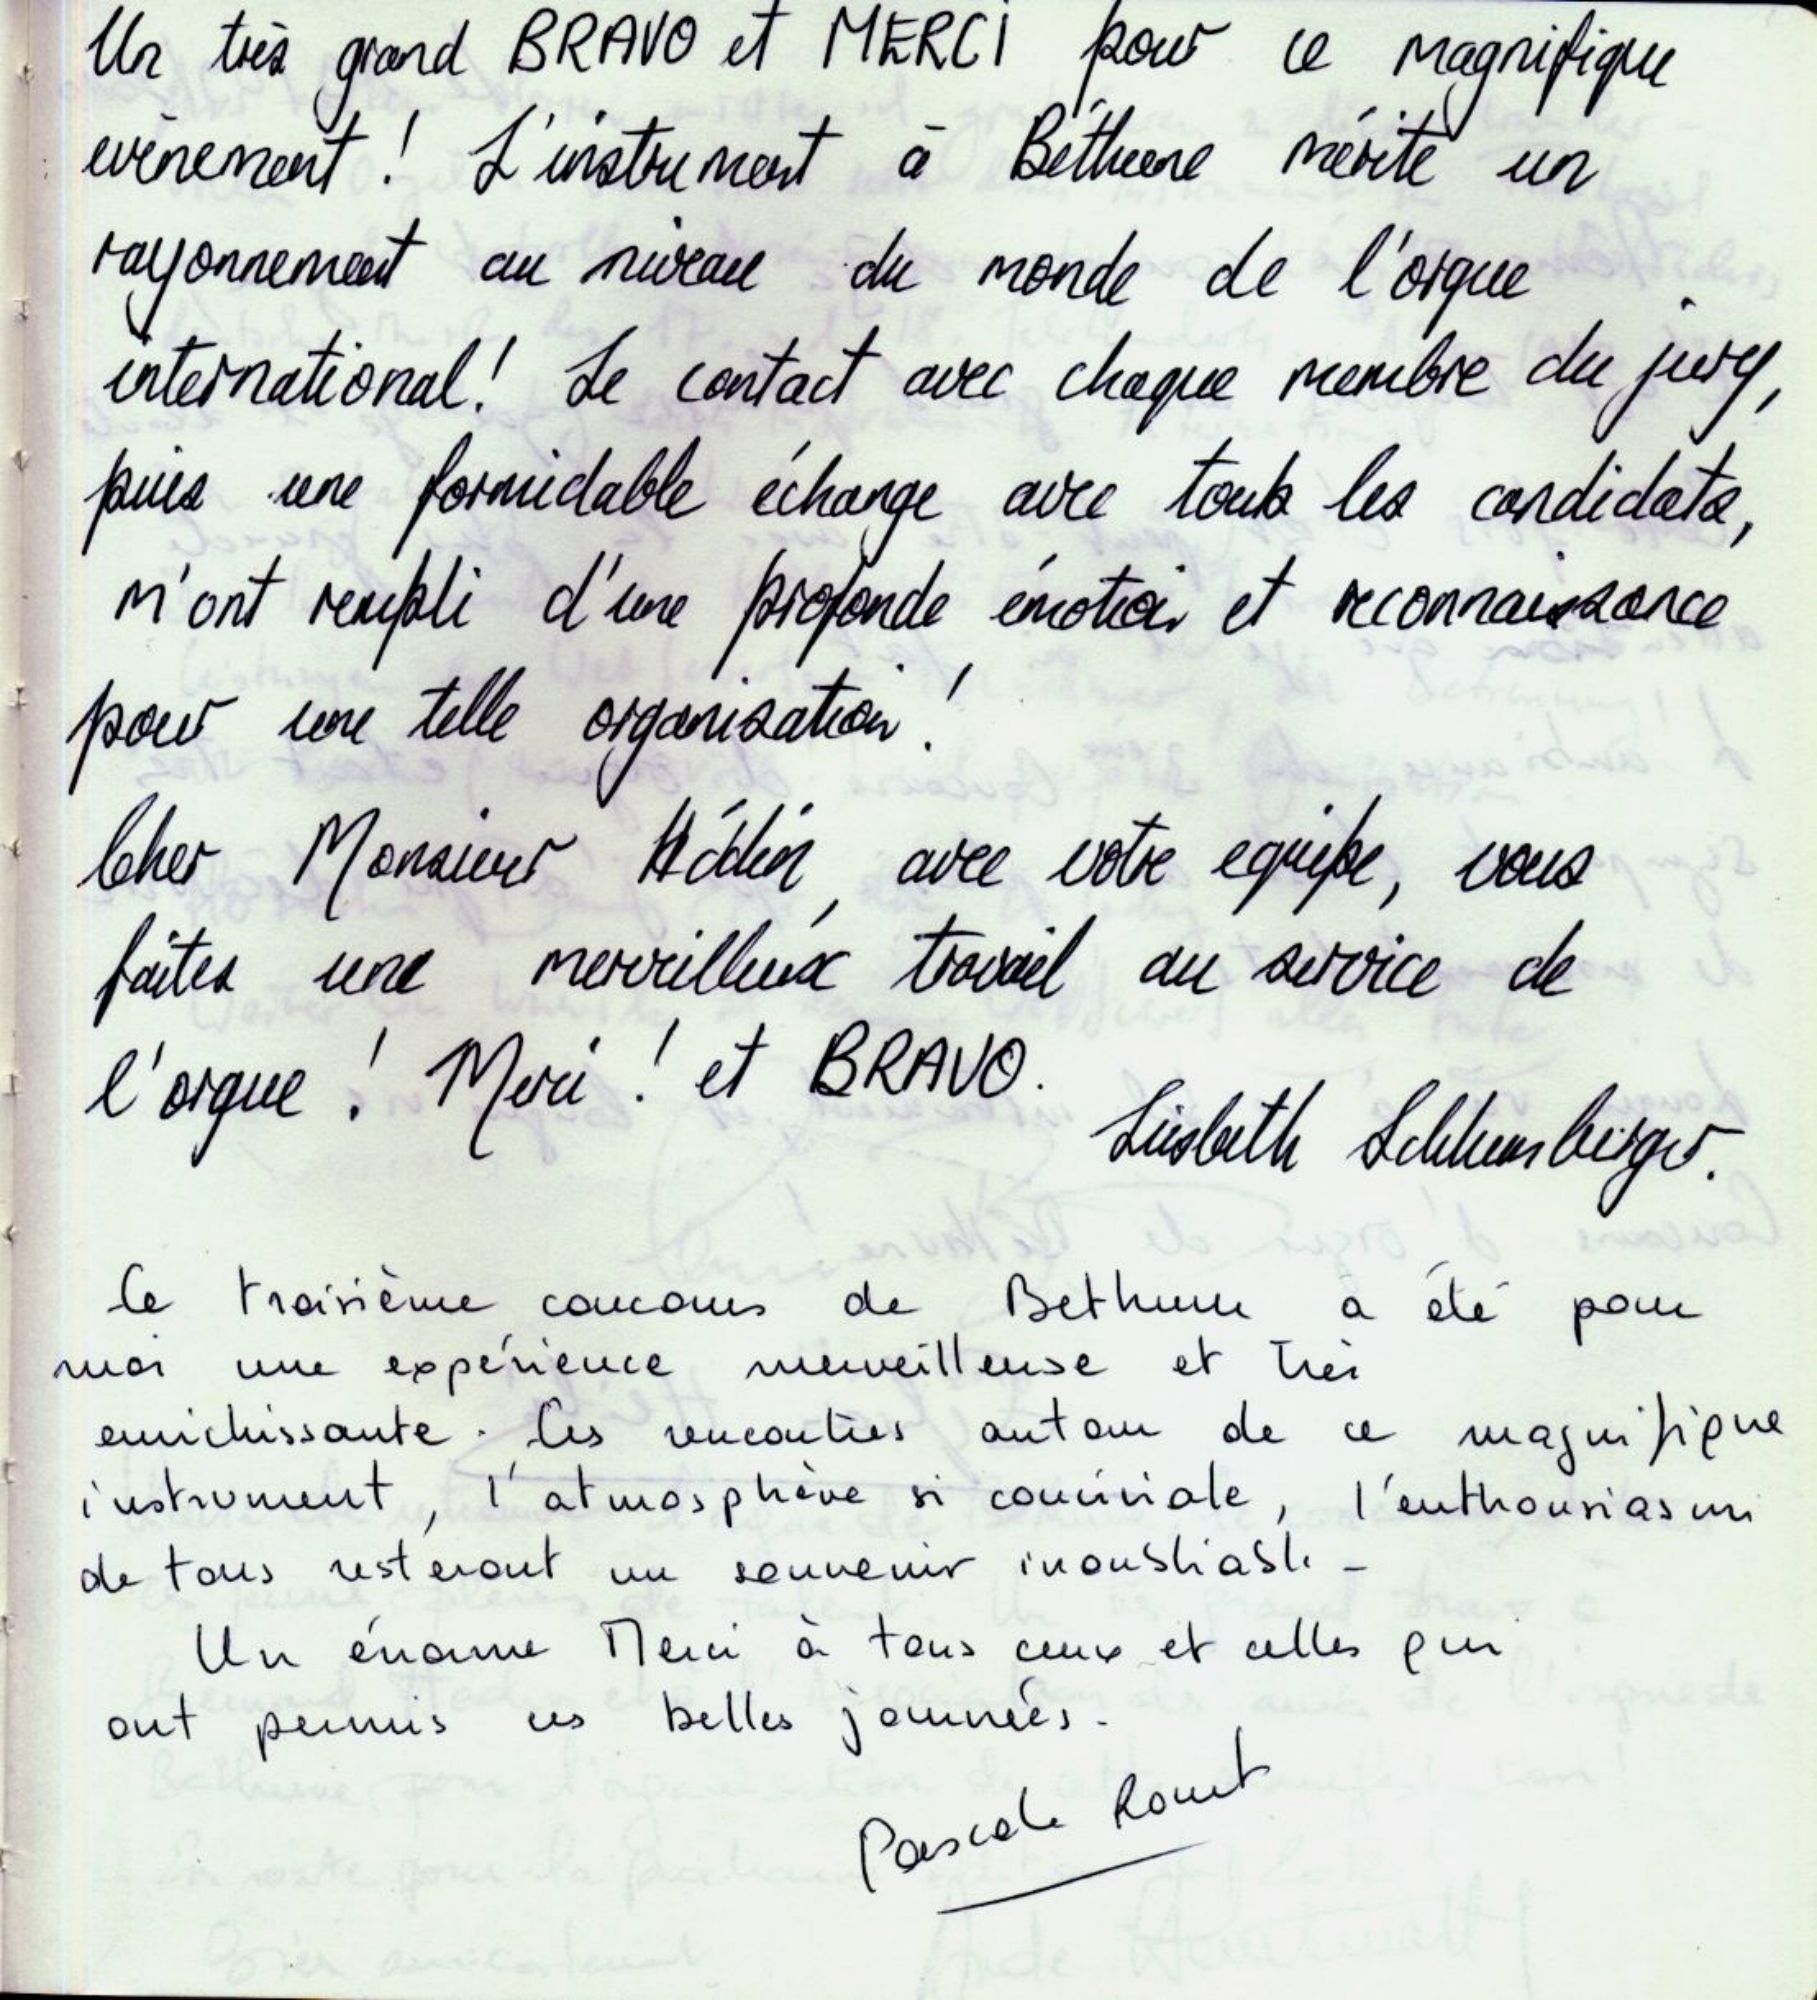 Un très grand BRAVO et MERCI pour ce magnifique
evènement ! L'instrument à Béthune mérite un
rayonnement au niveau du monde de l'orgue
international ! Le contact avec chaque membre du jury,
puis une formidable échange avec touts les candidats,
m'ont rempli d'une profonde émotion et reconnaissance
pour une telle organisation !
Cher Monsieur Hédin, avec votre equipe, vous
faites une merveilleux travail au service de
l'orgue ! Merci ! et BRAVO.
Liesbeth Schlumberger.
Ce troisième concours de Bethune a été pour
moi une expérience merveilleuse et très
enrichissante. Ces rencontres autour de ce magnifique
instrument, l'atmosphère si conviviale, l'enthousiasme
de tous resteront un souvenir inoubliable -
Un énorme Merci à tous ceux et celles qui
ont permis ces belles journées.
Pascale Rouet